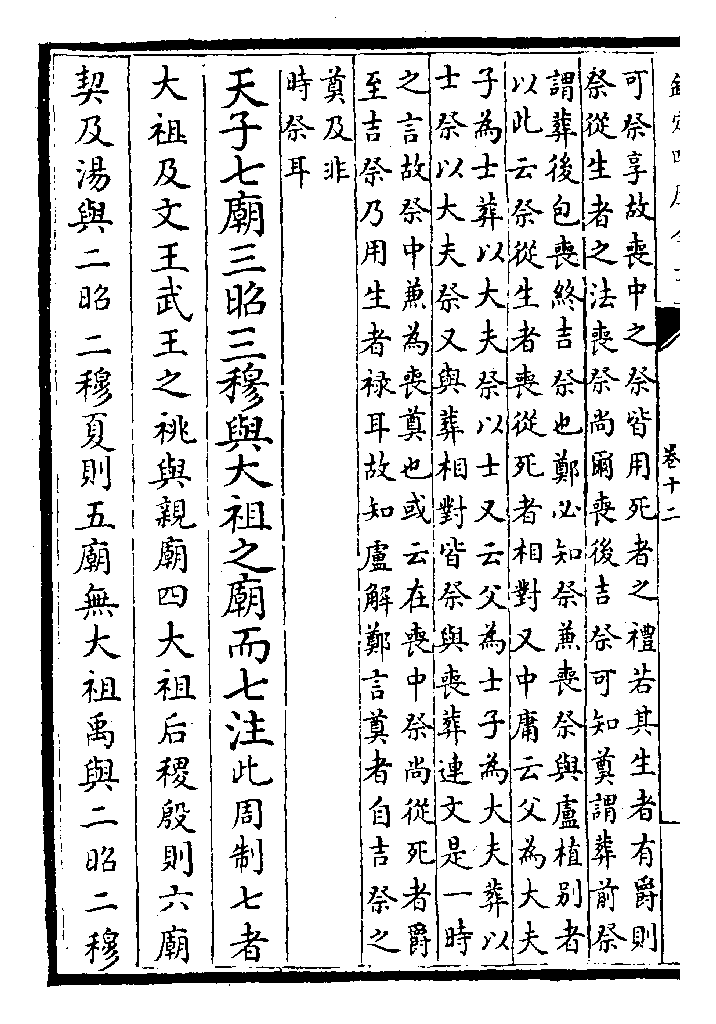 卷十二
可祭享故喪中之祭皆用死者之禮若其生者有爵則
祭從生者之法喪祭尚爾喪後吉祭可知奠謂葬前祭
謂葬後包喪終吉祭也鄭必知祭兼喪祭與盧植別者
以此云祭從生者喪從死者相對又中庸云父為大夫
子為士葬以大夫祭以士又云父為士子為大夫葬以
士祭以大夫祭又與葬相對皆祭與喪葬連文是一時
之言故祭中兼為喪奠也或云在喪中祭尚從死者爵
至吉祭乃用生者祿耳故知盧解鄭言奠者自吉祭之
奠及非
時祭耳
天子七廟三昭三穆與大祖之廟而七注此周制七者
大祖及文王武王之祧與親廟四大祖后稷殷則六廟
契及湯與二昭二穆夏則五廟無大祖禹與二昭二穆